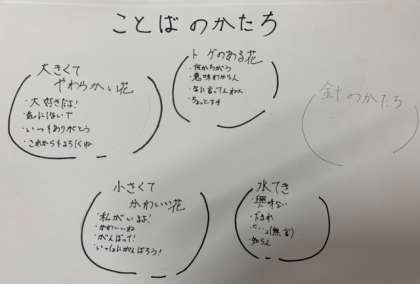 ことばのかたち
大きくて
やわらかい花
・大好きだよ!
・気にしないで
・いつもありがとう
・これからもよろしくね
トゲのある花
・何かちがう
・意味わからん
・なに言ってんねん
・ちょっとキモ
針のかたち
小さくて
かわいい花
・私がいるよ!
・かわいいね
・がんばって!
・いっしょにがんばろう!
水てき
・興味ない
・だまれ
・(無言)
・知らん